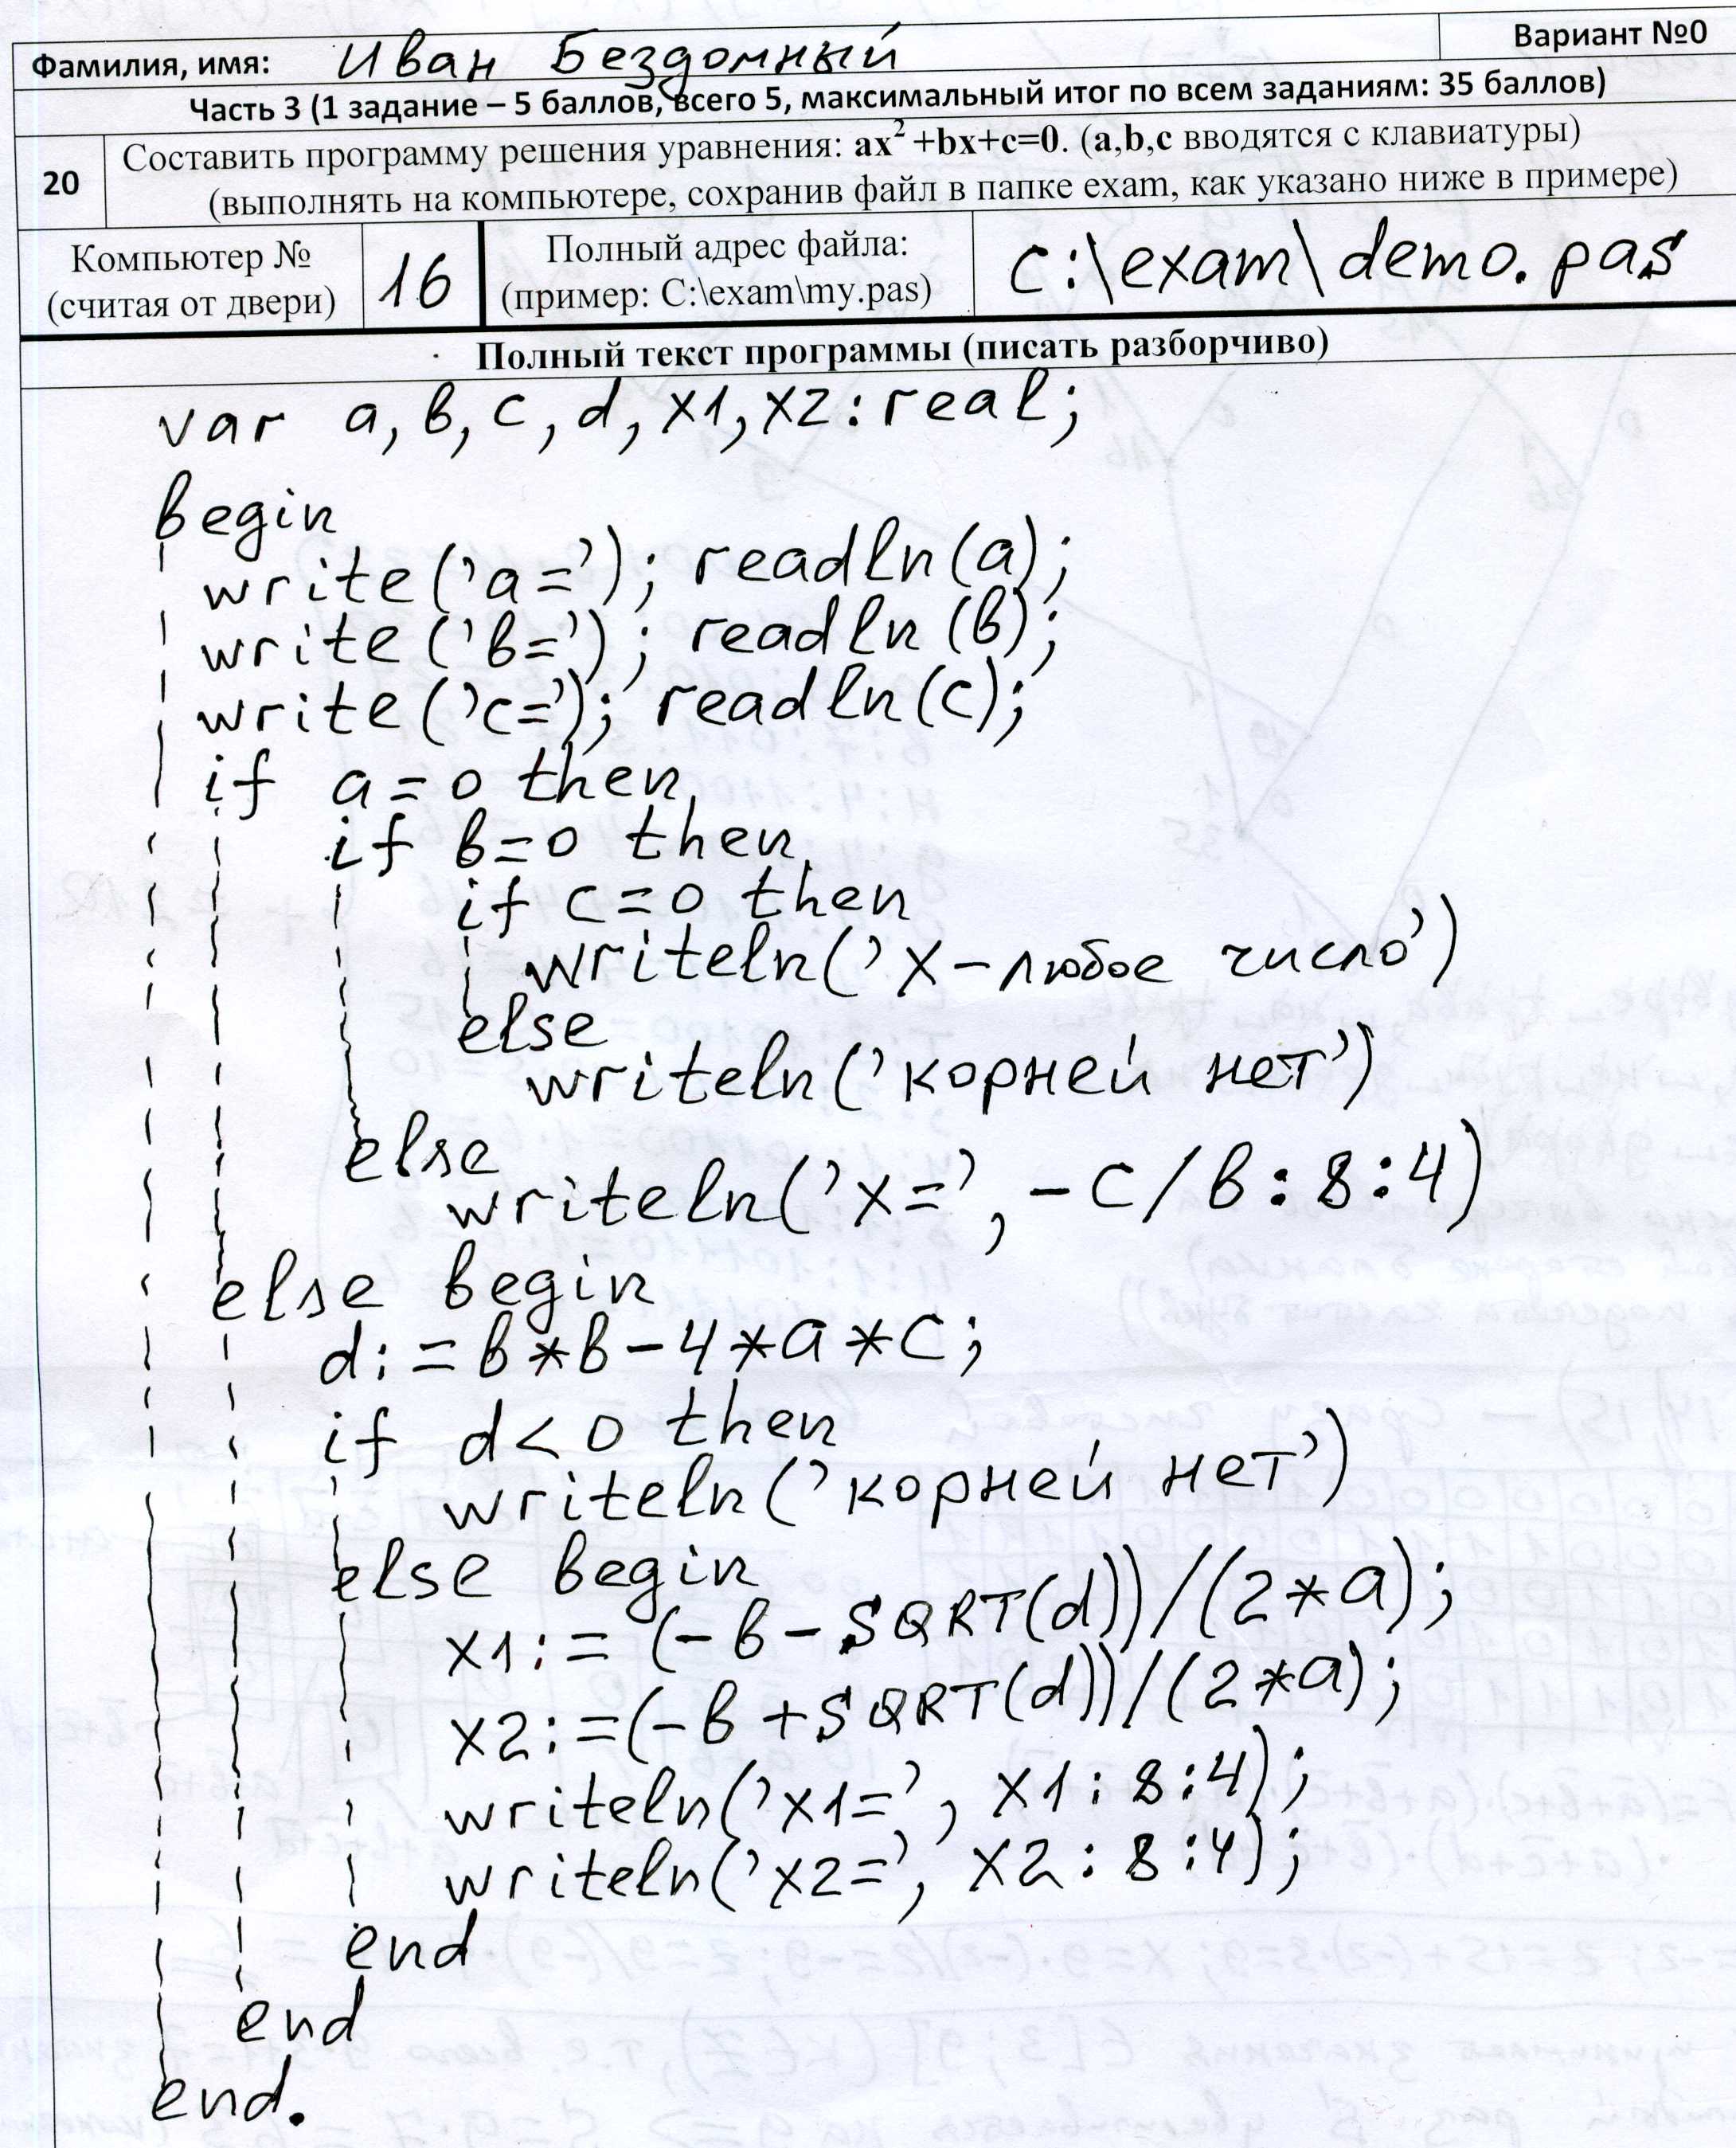 Фамилия, имя: Иван Бездомный Вариант №0
Часть 3 (1 задание – 5 баллов, всего 5, максимальный итог по всем заданиям: 35 баллов)
20 Составить программу решения уравнения: ax²+bx+c=0. (a,b,c вводятся с клавиатуры)
(выполнять на компьютере, сохранив файл в папке exam, как указано ниже в примере)
Компьютер № 16 Полный адрес файла: C:\exam\demo.pas
(считая от двери) (пример: C:\exam\my.pas)
Полный текст программы (писать разборчиво)
var a, b, c, d, x1, x2: real;
begin
write('a='); readln(a);
write('b='); readln(b);
write('c='); readln(c);
if a=0 then
if b=0 then
if c=0 then
writeln('x-любое число')
else
writeln('корней нет')
else
writeln('x=', -c/b:8:4)
else begin
d:=b*b-4*a*c;
if d<0 then
writeln('корней нет')
else begin
x1:=(-b-SQRT(d))/(2*a);
x2:=(-b+SQRT(d))/(2*a);
writeln('x1=', x1:8:4);
writeln('x2=', x2:8:4);
end
end
end.